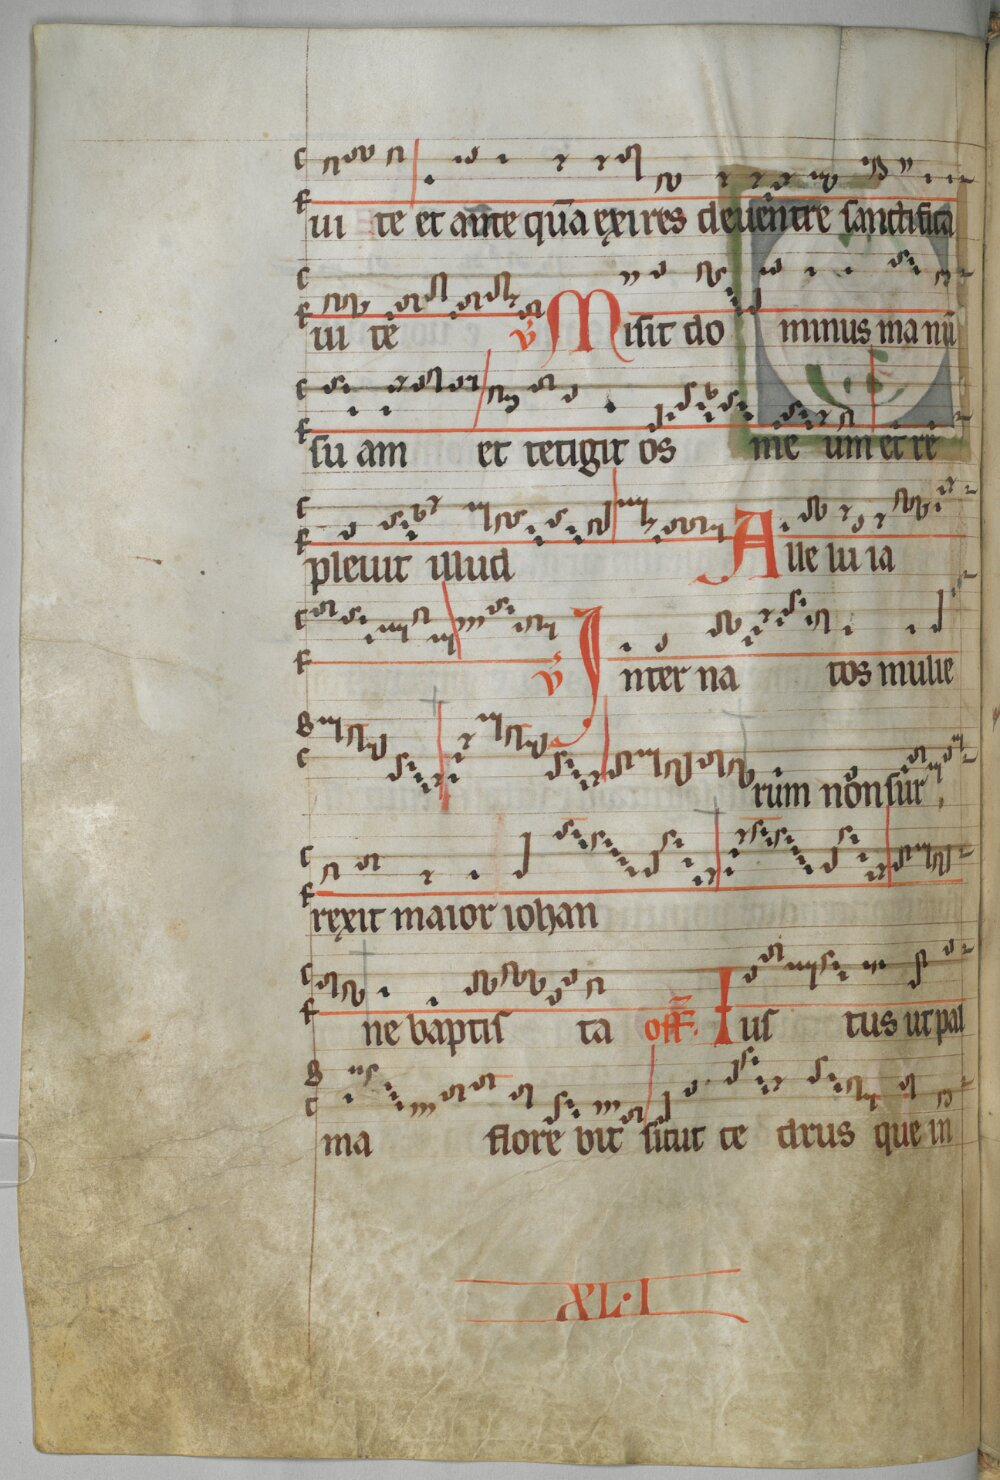 ui te et ante quā exires de uentre sanctifica
ui te v̄ Misit do minus ma nū
su am et tetigit os me um et re
pleuit illud Alle lu ia
v̄ Inter na tos mulie
rum non sur
rexit maior iohan
ne baptis ta off̄. Ius tus ut pal
ma flore bit sicut ce drus que in
XL·I